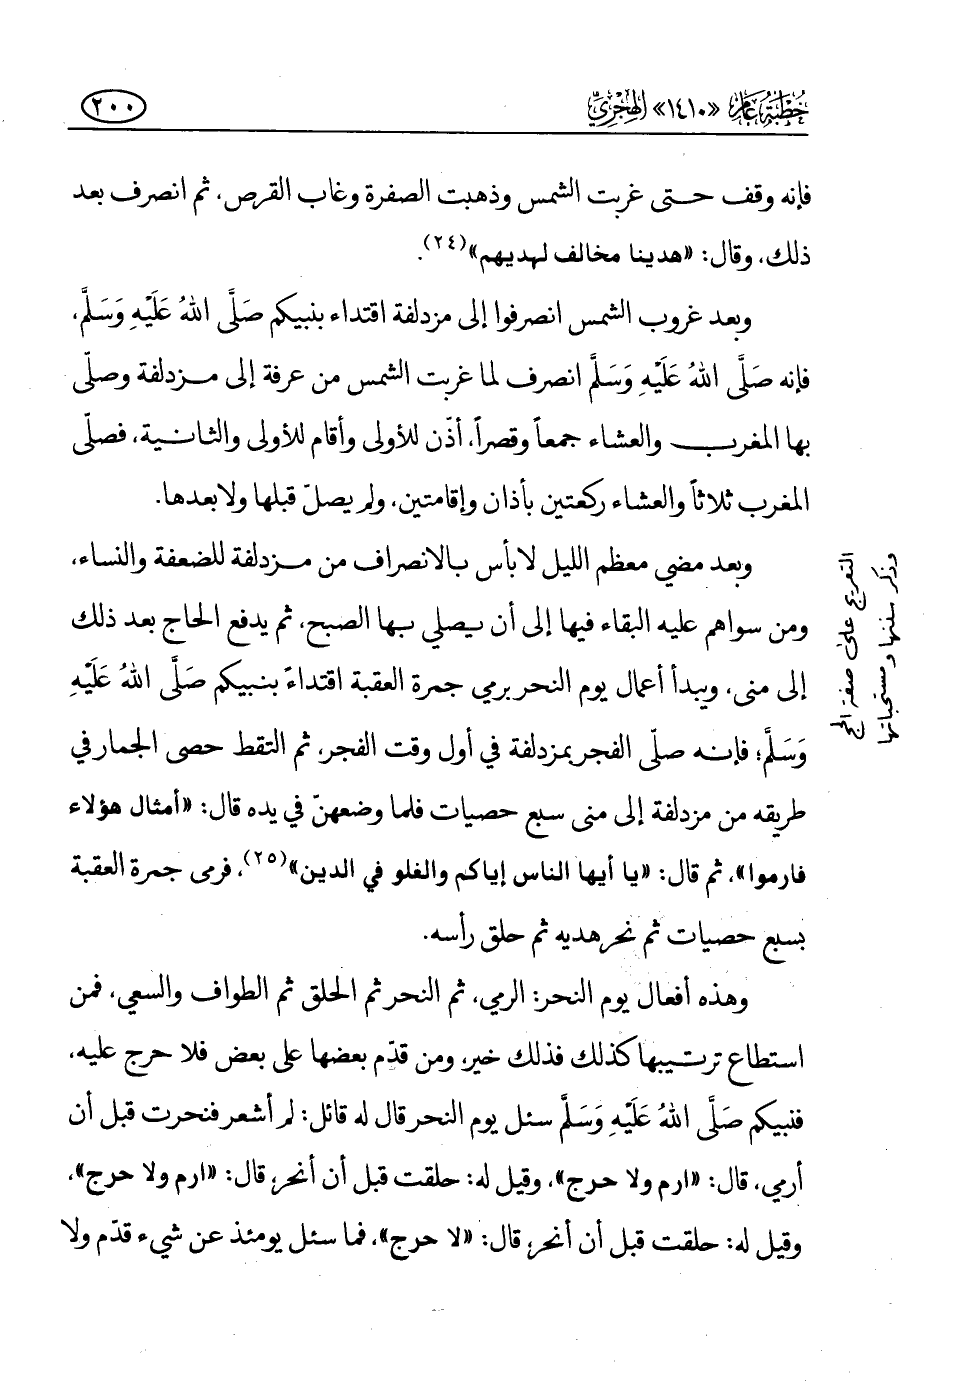 خطبة عام «١٤١٠» الهجري
٢٠٠
فإنه وقف حتى غربت الشمس وذهبت الصفرة وغاب القرص، ثم انصرف بعد
ذلك، وقال: «هدينا مخالف لهديهم»(٢٤).
وبعد غروب الشمس انصرفوا إلى مزدلفة اقتداء بنبيكم صَلَّى اللهُ عَلَيْهِ وَسَلَّم،
فإنه صَلَّى اللهُ عَلَيْهِ وَسَلَّم انصرف لما غربت الشمس من عرفة إلى مزدلفة وصلّى
بها المغرب والعشاء جمعاً وقصراً، أذّن للأولى وأقام للأولى والثانية، فصلى
المغرب ثلاثاً والعشاء ركعتين بأذان وإقامتين، ولم يصلّ قبلها ولا بعدها.
وبعد مضي معظم الليل لا بأس بالانصراف من مزدلفة للضعفة والنساء،
ومن سواهم عليه البقاء فيها إلى أن يصلي بها الصبح، ثم يدفع الحاج بعد ذلك
إلى منى، ويبدأ أعمال يوم النحر برمي جمرة العقبة اقتداءً بنبيكم صَلَّى اللهُ عَلَيْهِ
وَسَلَّم؛ فإنه صلّى الفجر بمزدلفة في أول وقت الفجر، ثم التقط حصى الجمار في
طريقه من مزدلفة إلى منى سبع حصيات فلما وضعهنّ في يده قال: «أمثال هؤلاء
فارموا»، ثم قال: «يا أيها الناس إياكم والغلو في الدين»(٢٥)، فرمى جمرة العقبة
بسبع حصيات ثم نحر هديه ثم حلق رأسه.
وهذه أفعال يوم النحر: الرمي، ثم النحر ثم الحلق ثم الطواف والسعي، فمن
استطاع ترتيبها كذلك فذلك خير، ومن قدّم بعضها على بعض فلا حرج عليه،
فنبيكم صَلَّى اللهُ عَلَيْهِ وَسَلَّم سئل يوم النحر قال له قائل: لم أشعر فنحرت قبل أن
أرمي، قال: «ارم ولا حرج»، وقيل له: حلقت قبل أن أنحر، قال: «ارم ولا حرج»،
وقيل له: حلقت قبل أن أنحر، قال: «لا حرج»، فما سئل يومئذ عن شيء قدّم ولا
التفريع على صفة الحج
وذكر سننها ومستحباتها